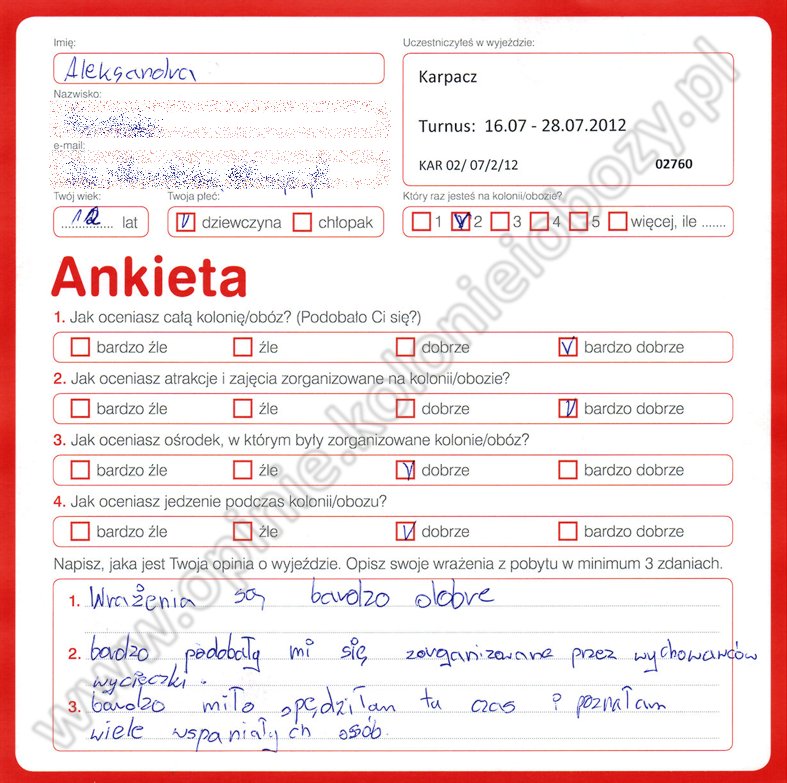 Imię:
Aleksandra
Uczestniczyłeś w wyjeździe:
Karpacz
Turnus: 16.07 - 28.07.2012
KAR 02/ 07/2/12 02760
Nazwisko:
e-mail:
Twój wiek:
12 lat
Twoja płeć:
dziewczyna chłopak
Który raz jesteś na kolonii/obozie?
1 2 3 4 5 więcej, ile .......
Ankieta
1. Jak oceniasz całą kolonię/obóz? (Podobało Ci się?)
bardzo źle źle dobrze bardzo dobrze
2. Jak oceniasz atrakcje i zajęcia zorganizowane na kolonii/obozie?
bardzo źle źle dobrze bardzo dobrze
3. Jak oceniasz ośrodek, w którym były zorganizowane kolonie/obóz?
bardzo źle źle dobrze bardzo dobrze
4. Jak oceniasz jedzenie podczas kolonii/obozu?
bardzo źle źle dobrze bardzo dobrze
Napisz, jaka jest Twoja opinia o wyjeździe. Opisz swoje wrażenia z pobytu w minimum 3 zdaniach.
1. Wrażenia są bardzo dobre
2. bardzo podobały mi się zorganizowane przez wychowawców
wycieczki.
3. bardzo miło spędziłam tu czas i poznałam
wiele wspaniałych osób.
www.opinie.kolonieiobozy.pl